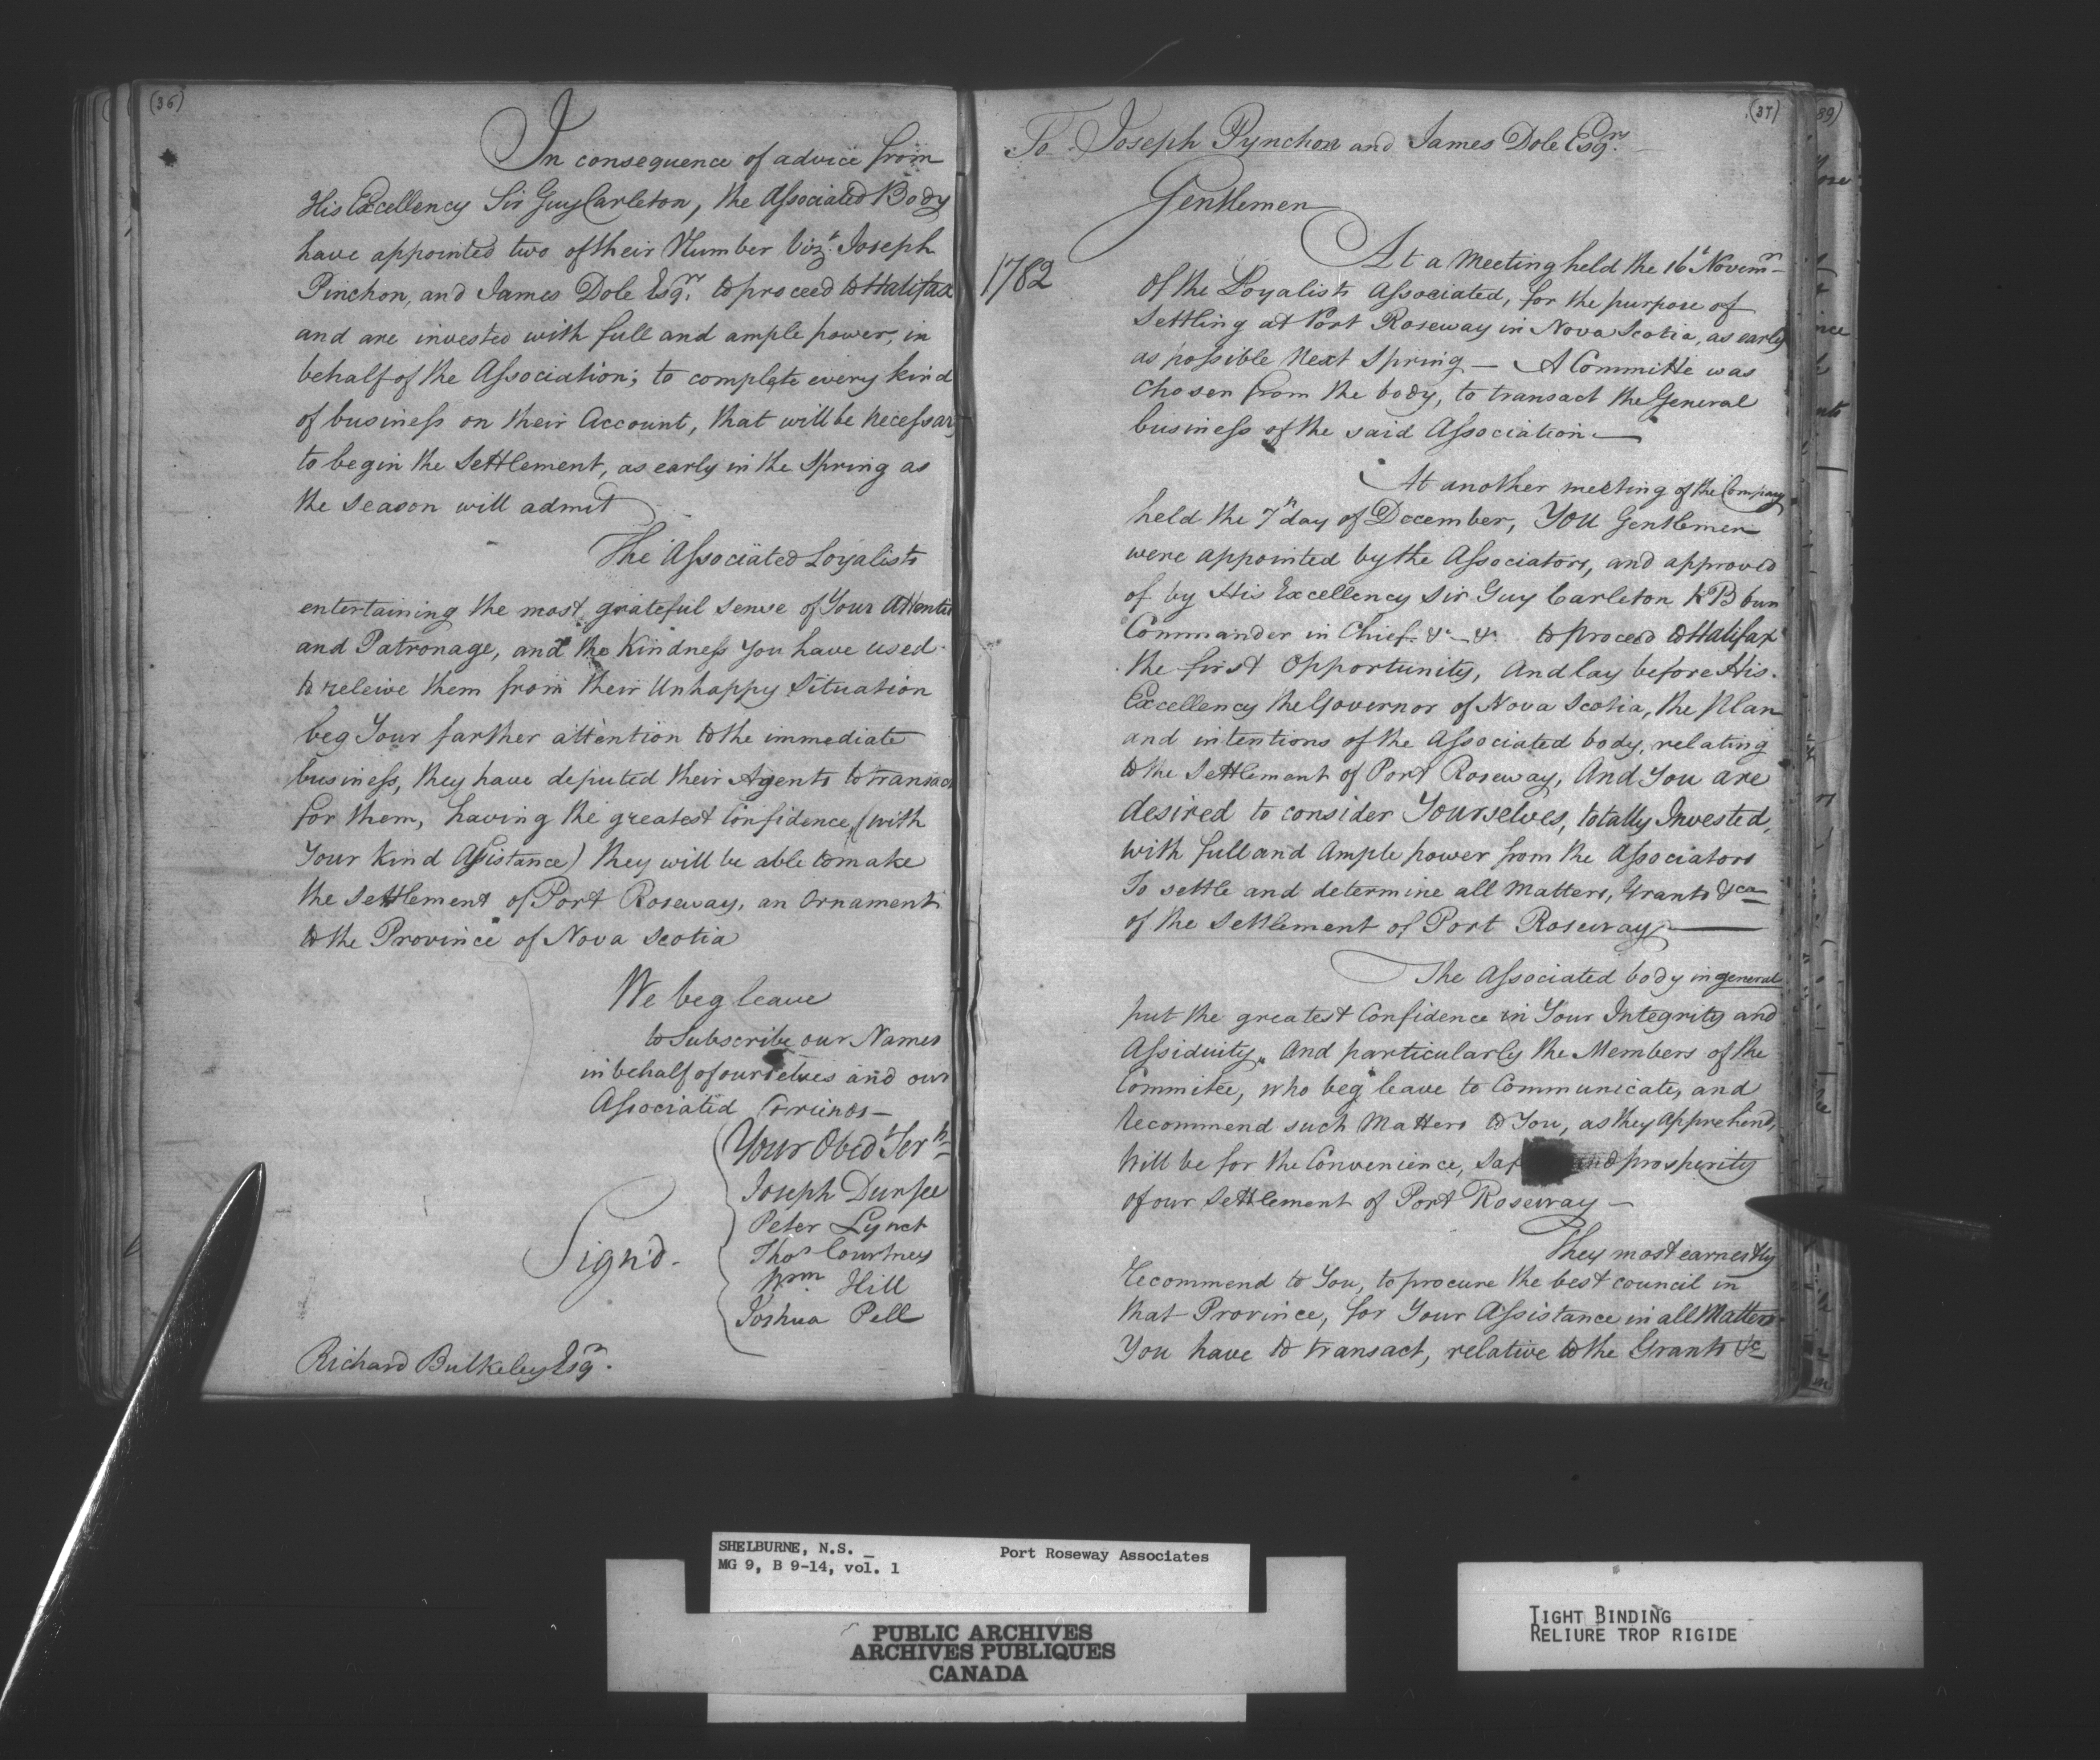 (36)
In consequence of advice from
His Excellency Sir Guy Carleton, the Associated Body
have appointed two of their Number Vizt. Joseph
Pinchon, and James Dole Esqrr. to proceed to Halifax
and are invested with full and ample power, in
behalf of the Association; to complete every kind
of business on their Account, that will be necessary
to begin the Settlement, as early in the Spring as
the season will admit
The Associated Loyalists
entertaining the most grateful sense of Your Attentio
and Patronage, and the Kindness you have used
to releive them from their Unhappy Situation
beg Your farther attention to the immediate
business, they have deputed their Agents to transact
for them, having the greatest Confidence, (with
Your Kind Assistance) they will be able to make
the Settlement of Port Roseway, an Ornament
to the Province of Nova Scotia
We beg leave
to Subscribe our Names
in behalf of ourselves and our
Associated Friends—
Your Obedt Serts
Joseph Durfee
Peter Lynch
Thos Courtney
Wm Hill
Joshua Pell
Sign'd.
Richard Bulkeley Esqr.
(37)
To Joseph Pynchon and James Dole Esqrs.
Gentlemen
1782
At a Meeting held the 16t Novemr
of the Loyalists Associated, for the purpose of
Settling at Port Roseway in Nova Scotia, as early
as possible Next Spring — A Committe was
Chosen from the body, to transact the General
business of the said Association—
At another meeting of the Company
held the 7th day of December, You Gentlemen
were appointed by the Associators, and approved
of by His Excellency Sir Guy Carleton KB
Commander in Chief &c — &c to proceed to Halifax
the first Opportunity, And lay before His
Excellency the Governor of Nova Scotia, the Plan
and intentions of the Associated body, relating
to the Settlement of Port Roseway, And You are
desired to consider Yourselves, totally Invested,
with full and Ample power from the Associators
To settle and determine all Matters, Grants &ca
of the Settlement of Port Roseway—
The Associated body in general
put the greatest Confidence in Your Integrity and
Assiduity, And particularly the Members of the
Commitee, who beg leave to Communicate, and
Recommend such Matters to You, as they Apprehend,
Will be for the Convenience, Saf and prosperity
of our Settlement of Port Roseway—
They most earnestly
Recommend to You, to procure the best council in
that Province, for Your Assistance in all Matters
You have to transact, relative to the Grants &c
39)
SHELBURNE, N.S. —
MG 9, B 9-14, vol. 1
Port Roseway Associates
PUBLIC ARCHIVES
ARCHIVES PUBLIQUES
CANADA
TIGHT BINDING
RELIURE TROP RIGIDE